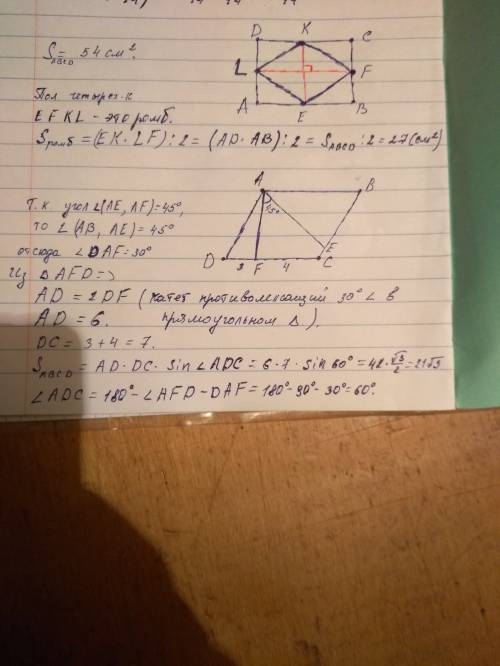 S ABCD = 54 см².
D K C
L F
A E B
Пол. четырех-к
EFKL - это ромб.
Sромб = (EK · LF) : 2 = (AD · AB) : 2 = S ABCD : 2 = 27 (см²)
A B
45°
E
D 3 F 4 C
Т.к. угол ∠(AE, AF) = 45°,
то ∠(AB, AE) = 45°
отсюда ∠DAF = 30°
Из ΔAFD =>
AD = 2DF (катет противолежащий 30° ∠ в
AD = 6. прямоугольном Δ.).
DC = 3 + 4 = 7.
S ABCD = AD · DC · sin∠ADC = 6 · 7 · sin 60° = 42 · √3/2 = 21√3
∠ADC = 180° - ∠AFD - DAF = 180° - 90° - 30° = 60°.